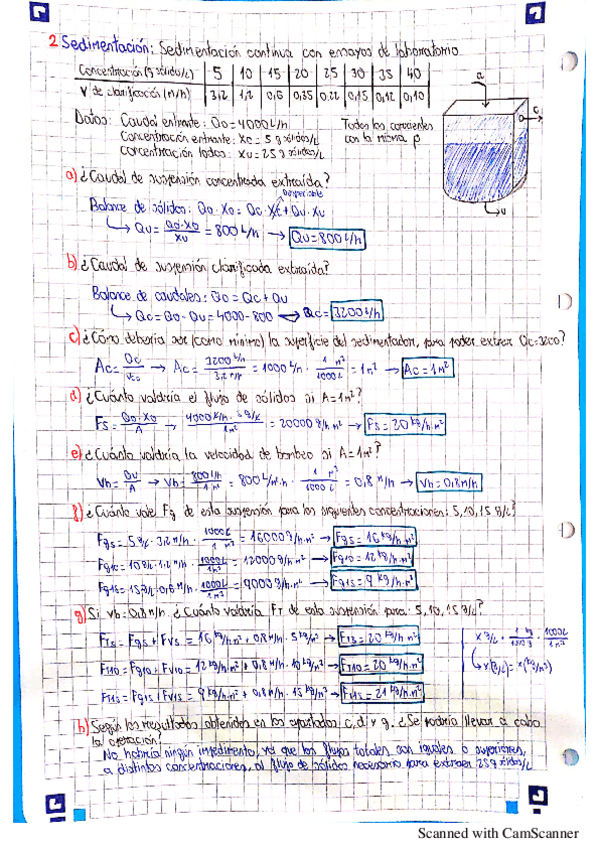 2 Sedimentación: Sedimentación continua con ensayos de laboratorio
Concentración (g sólidos/L) 5 10 15 20 25 30 35 40
V de clarificación (m/h) 3,2 1,2 0,6 0,35 0,22 0,15 0,12 0,10
Datos: Caudal entrante: Qo = 4000 L/h
Concentración entrante: Xo = 5 g sólidos/L
Concentración lodos: Xu = 25 g sólidos/L
Todos las corrientes
con la misma ρ
a) ¿Caudal de suspensión concentrada extraída?
Balance de sólidos: Qo·Xo = Qc·Xc + Qu·Xu
Qu = Qo·Xo/Xu = 800 L/h → Qu = 800 L/h
b) ¿Caudal de suspensión clarificada extraída?
Balance de caudales: Qo = Qc + Qu
Qc = Qo - Qu = 4000 - 800 → Qc = 3200 L/h
c) ¿Cómo debería ser (como mínimo) la superficie del sedimentador, para poder extraer Qc = 3200?
Ac = Qc/vco → Ac = 3200 L/h / 3,2 m/h = 1000 L/m · 1 m³/1000 L = 1 m² → Ac = 1 m²
d) ¿Cuánto valdría el flujo de sólidos si A = 1 m²?
Fs = Qo·Xo/A → 4000 L/h · 5 g/L / 1 m² = 20000 g/h·m² → Fs = 20 kg/h·m²
e) ¿Cuánto valdría la velocidad de bombeo si A = 1 m²?
Vb = Qu/A → Vb = 800 L/h / 1 m² = 800 L/m²·h · 1 m³/1000 L = 0,8 m/h → Vb = 0,8 m/h
f) ¿Cuánto vale Fg de esta suspensión para las siguientes concentraciones: 5, 10, 15 g/L?
Fg5 = 5 g/L · 3,2 m/h · 1000 L/1 m³ = 16000 g/h·m² → Fg5 = 16 kg/h·m²
Fg10 = 10 g/L · 1,2 m/h · 1000 L/1 m³ = 12000 g/h·m² → Fg10 = 12 kg/h·m²
Fg15 = 15 g/L · 0,6 m/h · 1000 L/1 m³ = 9000 g/h·m² → Fg15 = 9 kg/h·m²
g) Si vb = 0,8 m/h ¿Cuánto valdría FT de esta suspensión para: 5, 10, 15 g/L?
FT5 = Fg5 + FV5 = 16 kg/h·m² + 0,8 m/h · 5 kg/m³ → FT5 = 20 kg/h·m²
FT10 = Fg10 + FV10 = 12 kg/h·m² + 0,8 m/h · 10 kg/m³ → FT10 = 20 kg/h·m²
FT15 = Fg15 + FV15 = 9 kg/h·m² + 0,8 m/h · 15 kg/m³ → FT15 = 21 kg/h·m²
x g/L · 1 kg/1000 g · 1000 L/1 m³
x (g/L) = x (kg/m³)
h) Según los resultados obtenidos en los apartados c, d y g, ¿Se podría llevar a cabo
la operación?
No habría ningún impedimento, ya que los flujos totales son iguales o superiores,
a distintas concentraciones, al flujo de sólidos necesario para extraer 25 g sólidos/L
Scanned with CamScanner